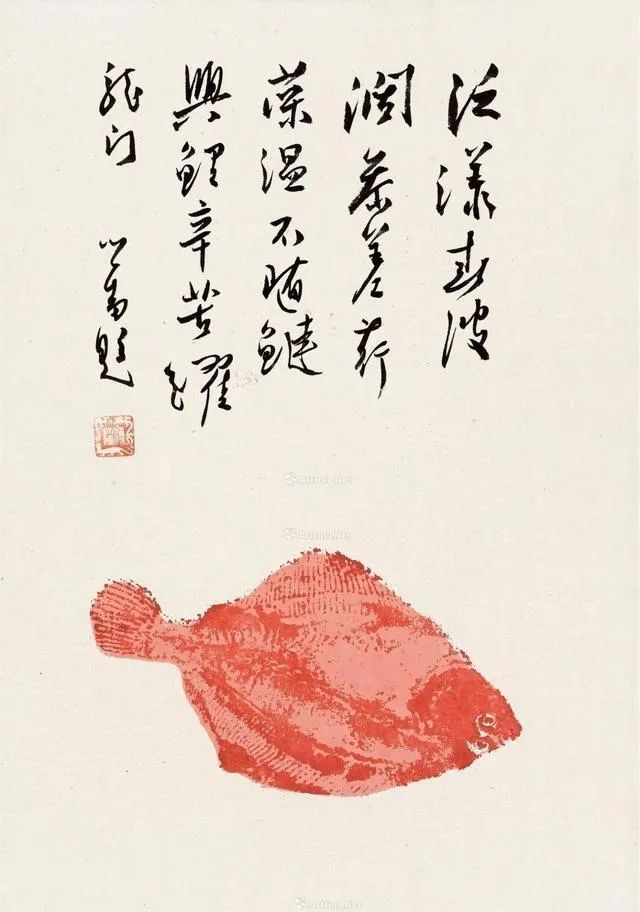 泛漾春波
濶參差荇
菜温不随鰱
與鯉辛苦躍
龍门 心畬題
Artron.Net
Artron.Net
Artron.Net